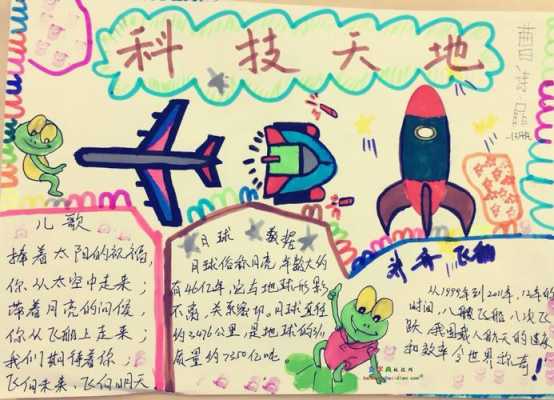 科技天地
儿歌
捧着太阳的祝福,
你从太空中走来;
带着月亮的问候,
你从飞船上走来;
我们期待着你;
飞向未来、飞向明天
月球 数据
月球俗称月亮年龄大约
有46亿年,它与地球形影
不离,关系密切,月球直径
约3476公里,是地球的3/11
质量约7350亿吨
神舟飞船
从1999年到2011年,12年的
时间,八艘飞船,八次飞
跃,我国载人航天的速度
和效率令世界称奇!